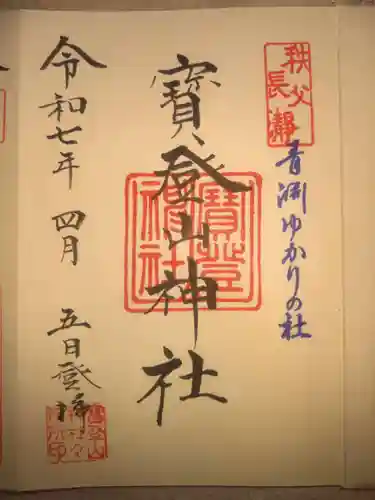 秩父
長瀞
青淵ゆかりの社
寳登山神社
寳登
山神社
令和七年 四月 五日登拝